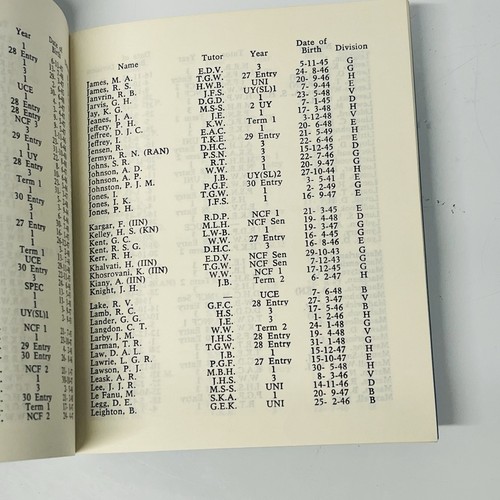 Year
1
28 Entry
3
1
UCE
1
28 Entry
28 Entry
NCF 3
3
29 Entry
1
1 UY
3
Term 1
1
30 Entry
1
1
27 Entry
1
Term 1
UCE
30 Entry
3
SPEC
1
1
UY(SL)1
NCF 1
1
29 Entry
30 Entry
NCF 2
1
3
1
30 Entry
Term 1
NCF 2
Name Tutor Year Date of Birth Division
James, M. A. E.D.V. 3 5-11-45 G
James, R. S. T.G.W. 27 Entry 24- 8-46 G
Janvrin, R. B. H.W.B. UNI 20- 9-46 H
Jarvis, G. H. J.F.S. UY(SL)1 7- 9-44 E
Jay, K. G. D.G.D. 1 23- 5-48 V
Jeanes, J. A. M.S.S. 2 UY 7- 1-45 D
Jeffery, P. H. J.E. 1 17- 3-48 H
Jeffree, D. J. C. K.W. Term 1 3-12-48 V
Jeffrey, I. E.A.C. 1 20- 6-48 E
Jensen, R. T.K.E. 29 Entry 21- 5-49 H
Jermyn, R. N. (RAN) D.H.C. 3 22- 6-46 E
Johns, S. R. P.S.N. 3 15-12-45 D
Johnson, A. D. R.T. 3 22- 7-46 G
Johnson, A. P. W.W. 1 20- 9-47 G
Johnston, P. J. M. J.B. UY(SL)2 27-10-44 H
Jones, I. P.G.F. 30 Entry 3- 5-41 E
Jones, I. K. T.G.W. 1 2- 2-49 G
Jones, P. H. J.F.S. 1 16- 9-47 E
Kargar, F. (IIN) R.D.P. NCF 1 21- 3-45 E
Kelley, H. S. (KN) M.L.H. NCF Sen 19- 4-48 D
Kent, G. C. L.W.B. 1 19- 3-47 G
Kent, R. S. G. W.W. 27 Entry 16- 4-46 G
Kerr, R. H. D.H.C. 3 16- 8-46 E
Khalvati, H. (IIN) E.D.V. NCF Sen 29-10-43 G
Khosrovani, K. (IIN) T.G.W. NCF Sen 7-12-43 G
Kiany, A. (IIN) W.W. NCF 1 17-12-45 G
Knight, J. H. J.B. Term 2 6- 2-47 H
Lake, R. V. — UCE 7- 6-48 B
Lamb, R. C. G.F.C. 28 Entry 27- 3-47 V
Lander, G. G. H.S. 3 17- 5-46 B
Langdon, C. T. J.E. 3 1- 2-46 H
Larby, M. J. W.W. Term 2 24- 1-48 G
Larman, T. R. J.H.S. 28 Entry 19- 4-48 V
Law, D. A. L. T.G.W. 28 Entry 31- 1-48 G
Lawrie, L. G. R. J.B. 1 15-12-47 H
Lawson, P. J. P.G.F. 27 Entry 15-10-47 E
Leask, A. R. M.B.H. 1 30- 5-48 H
Lee, J. J. R. J.H.S. 3 8- 3-46 V
Le Fanu, M. M.S.S. UNI 14-11-46 D
Legg, D. E. S.K.A. 1 20- 6-47 B
Leighton, B. G.E.K. UNI 25- 2-46 B